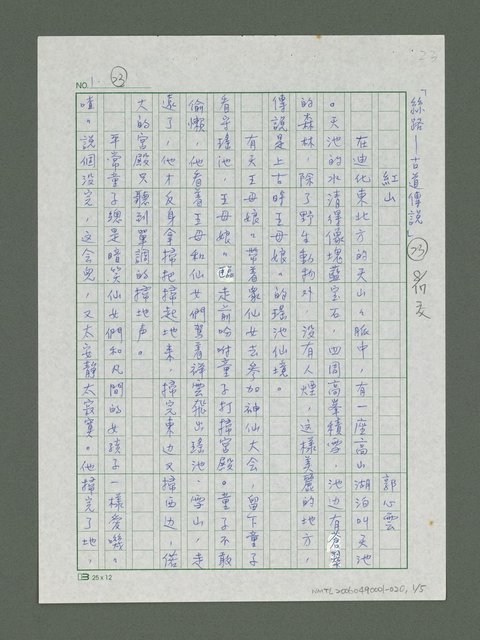 23
NO. 1.
23
「絲路—古道傳說」
23
8/17 交
紅山
郭心雲
在迪化東北方的天山山脈中，有一座高山湖泊叫天池
。天池的水清得像塊藍宝石，四周高峯積雪，池边有蒼翠
的森林，除了野生動物外，沒有人煙，這樣美麗的地方，
傳說是上古時王母娘娘的瑤池仙境。
有天王母娘娘帶着眾仙女去參加神仙大会，留下童子
看守瑤池，王母娘娘臨走前吩咐童子打掃宮殿。童子不敢
偷懶，他看着王母和仙女們駕着祥雲飛出瑤池、雪山，走
遠了，他才反身拿掃把掃起地來，掃完東边又掃西边，偌
大的宮殿只聽到單調的掃地声。
平常童子總是暗笑仙女們和凡間的女孩子一樣愛嘰嘰
喳喳說個沒完，这会兒，又太安靜太寂寞。他掃完了地，
25 x 12
NMTL20060490001-020, 1/5